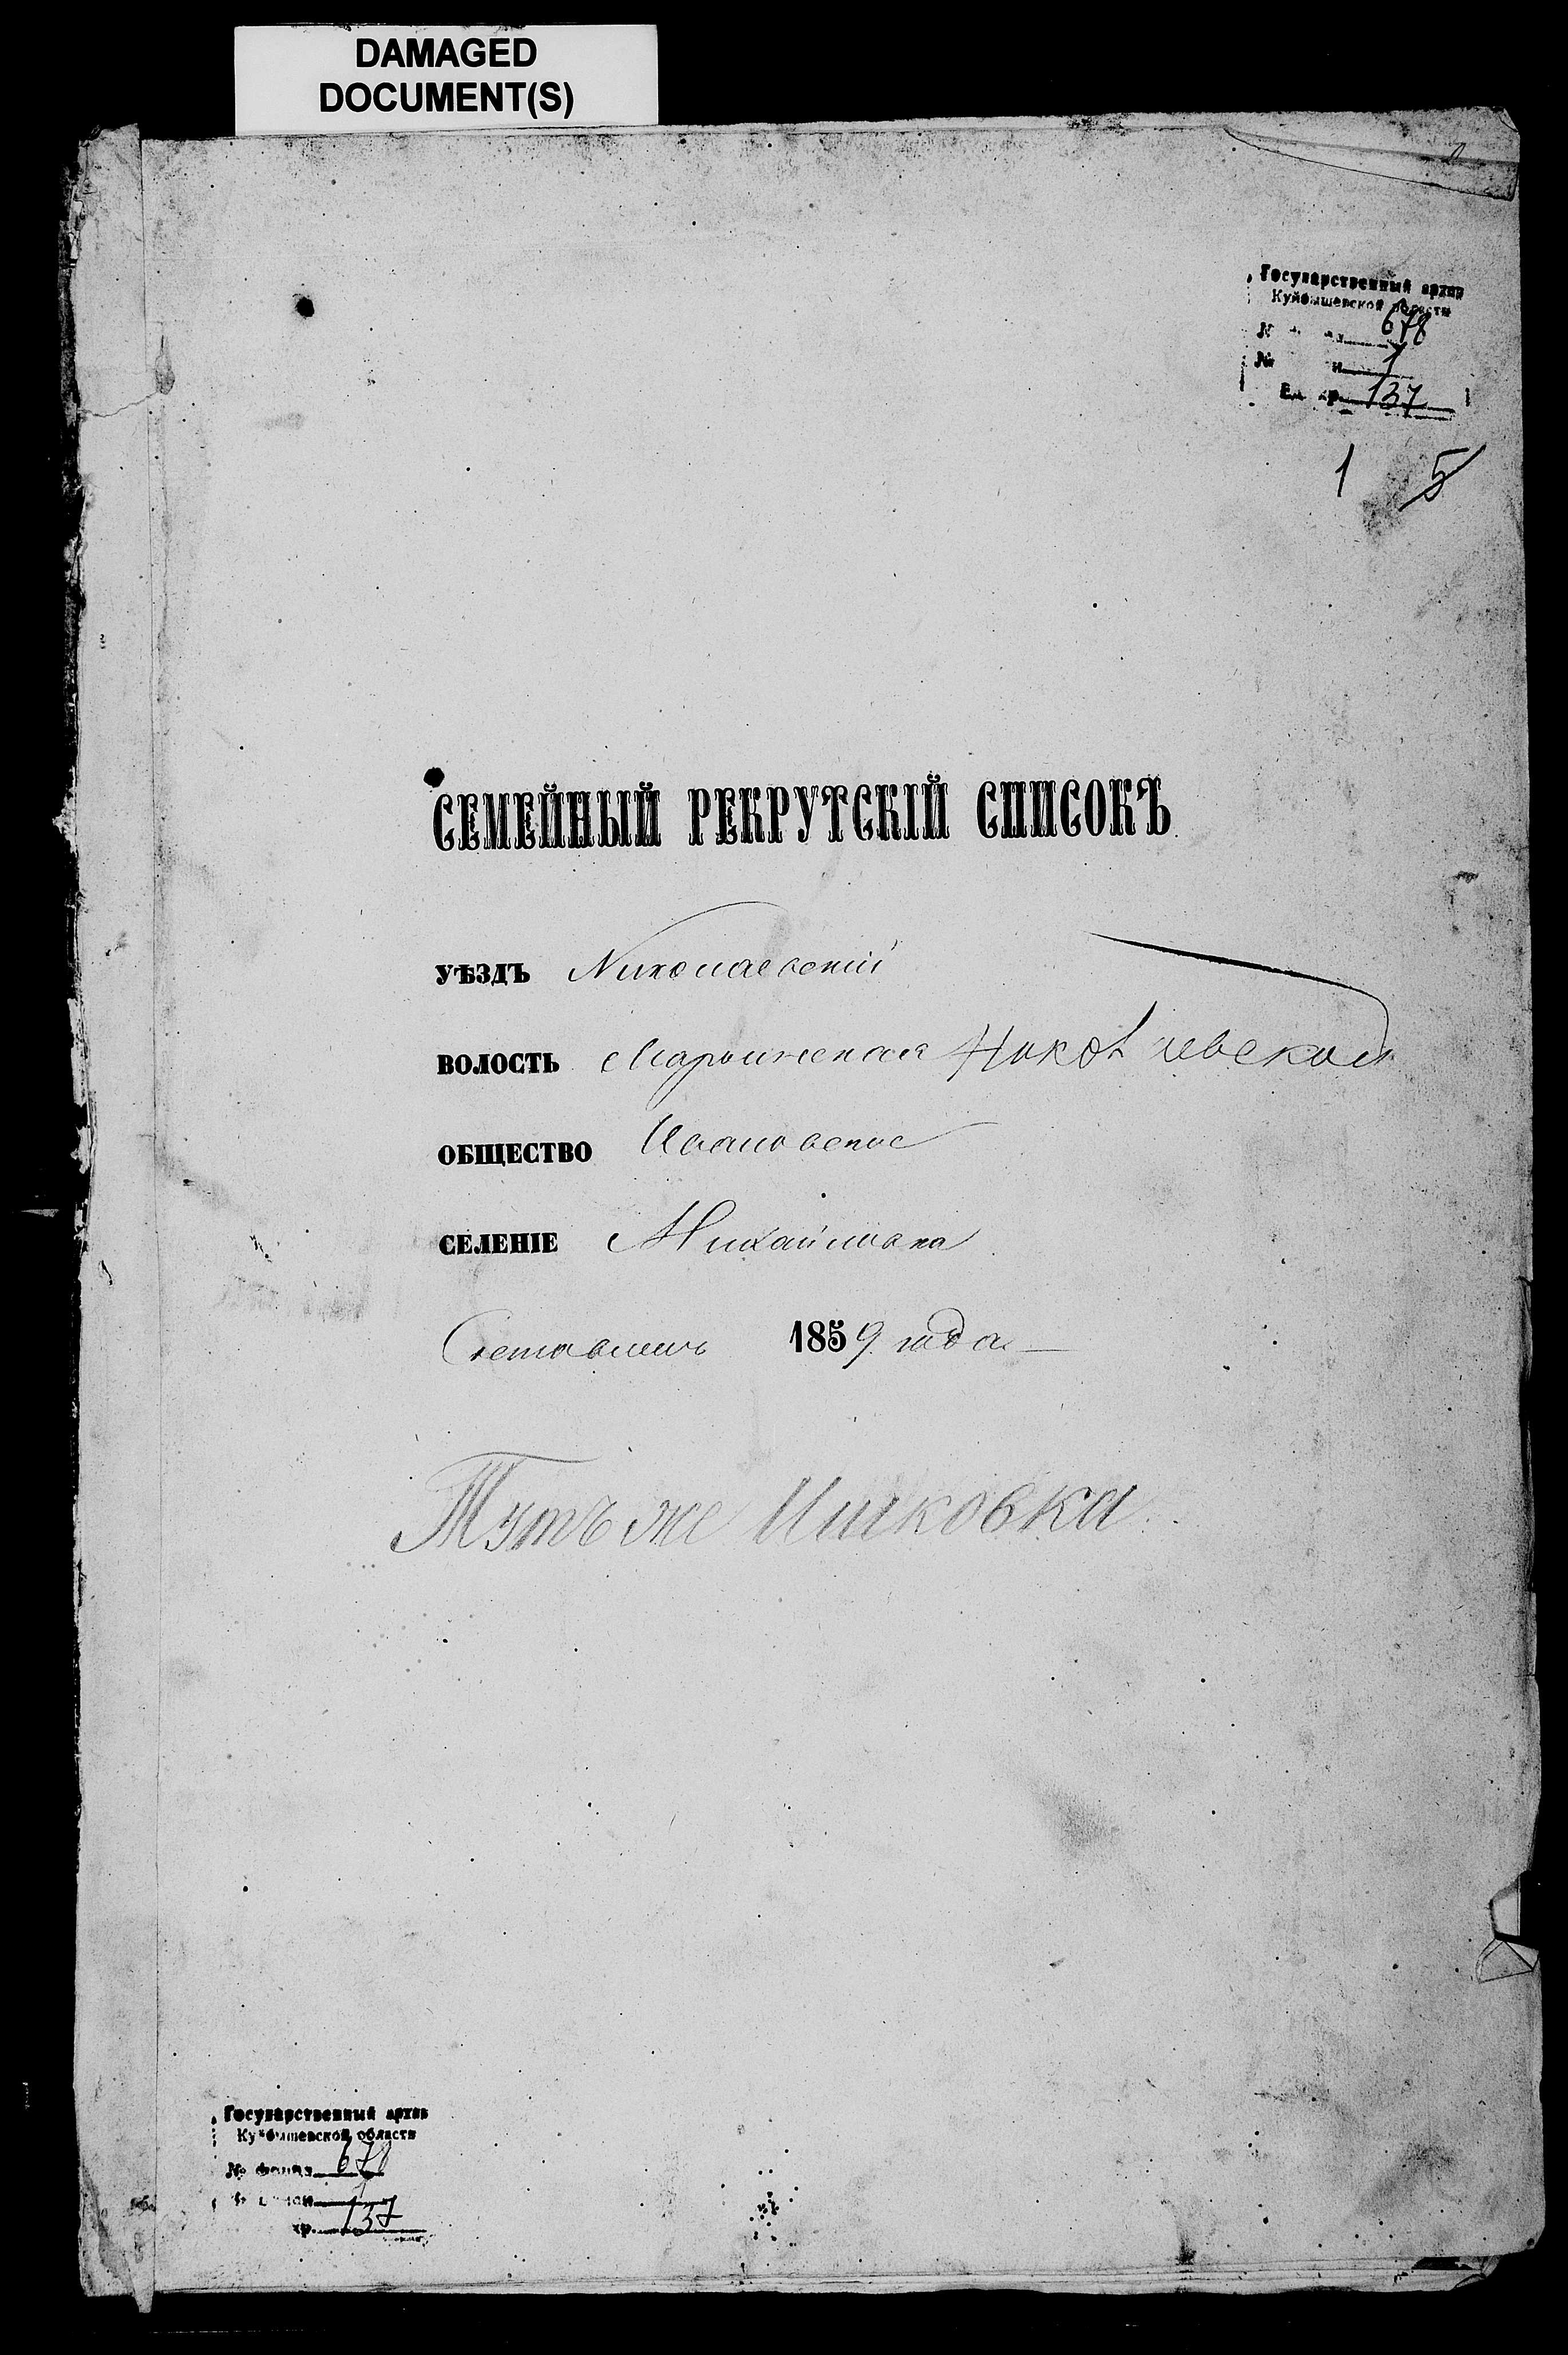 DAMAGED
DOCUMENT(S)
Государственный архив
Куйбышевской области
678
№ 1
Ед. хр. 137
1 5
СЕМЕЙНЫЙ РЕКРУТСКІЙ СПИСОКЪ
УѢЗДЪ Николаевскій
ВОЛОСТЬ Марьинская Николаевская
ОБЩЕСТВО Ивановское
СЕЛЕНІЕ Михайловка
Составленъ 1859 года
Тутъ же Ишковка
Государственный архив
Куйбышевской области
№ фонда 678
1
хр. 137